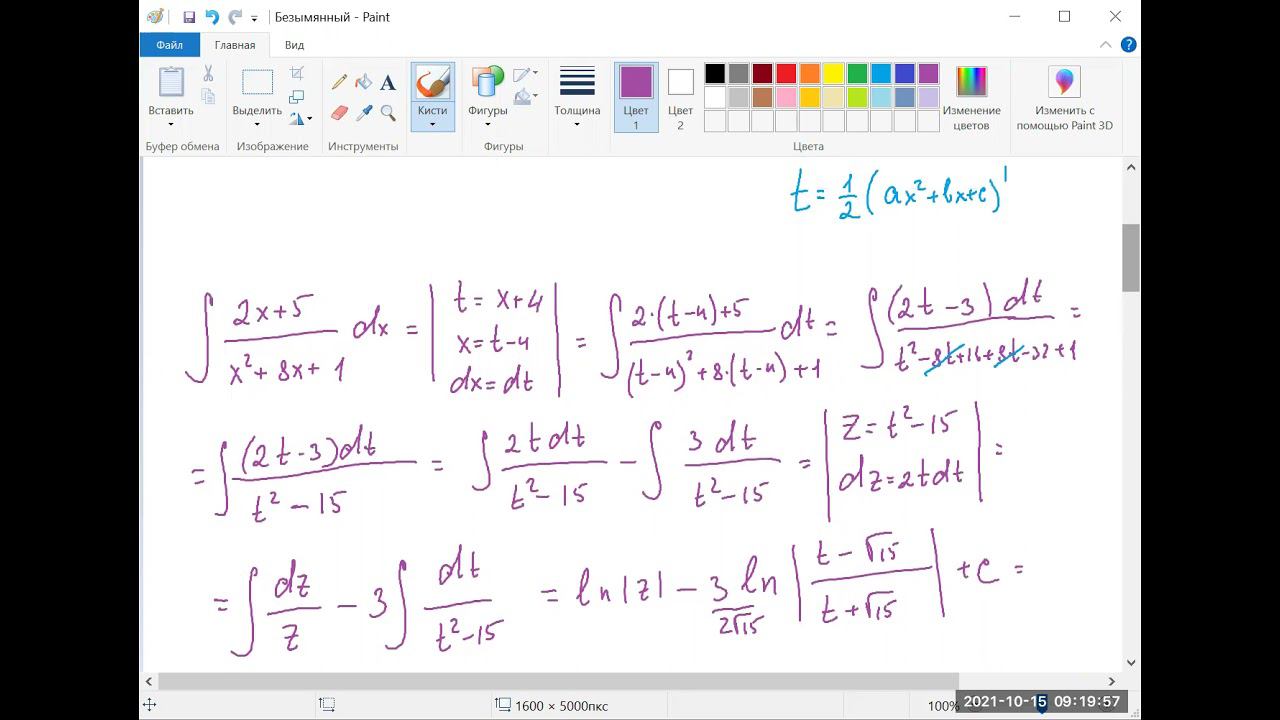 Безымянный - Paint
Файл Главная Вид
Вставить Выделить Кисти Фигуры Толщина Цвет 1 Цвет 2 Изменение цветов Изменить с помощью Paint 3D
Буфер обмена Изображение Инструменты Фигуры Цвета
t = 1/2 (ax²+bx+c)'
∫ (2x+5)/(x²+8x+1) dx = | t = x+4 x = t-4 dx = dt | = ∫ (2·(t-4)+5)/((t-4)²+8·(t-4)+1) dt = ∫ (2t-3) dt/(t²-8t+16+8t-32+1) =
= ∫ (2t-3)dt/(t²-15) = ∫ 2tdt/(t²-15) - ∫ 3dt/(t²-15) = | z = t²-15 dz = 2tdt | =
= ∫ dz/z - 3 ∫ dt/(t²-15) = ln|z| - 3/(2√15) ln | (t-√15)/(t+√15) | + c =
1600 × 5000пкс 100%
2021-10-15 09:19:57